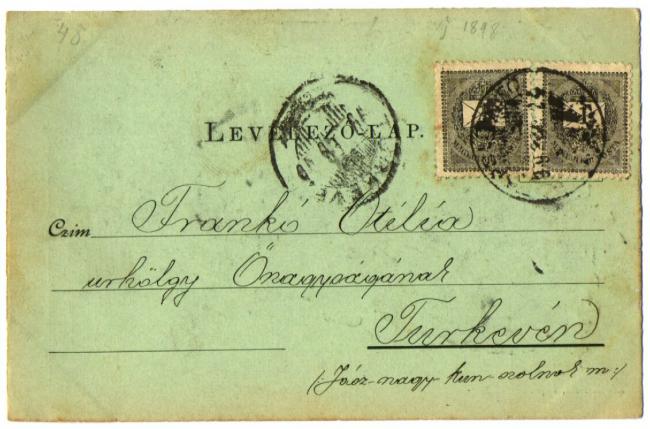 48 1898
LEVELEZŐ-LAP.
Czim Frankó Otília
urhölgy Őnagyságának
Túrkevén
(Jász-nagy kun-szolnok m:)